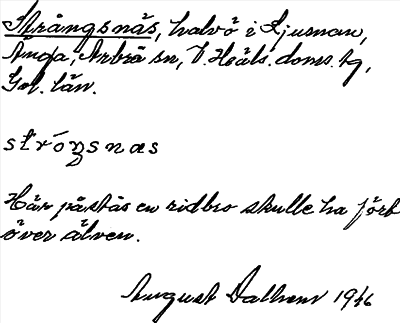 Strångsnäs, halvö i Ljusnan,
Änga, Arbrå sn, V. Häls. doms. tg,
Gvl. län.
stróŋsnæs
Här påstås en ridbro skulle ha förb
över älven.
August Dalhem 1916